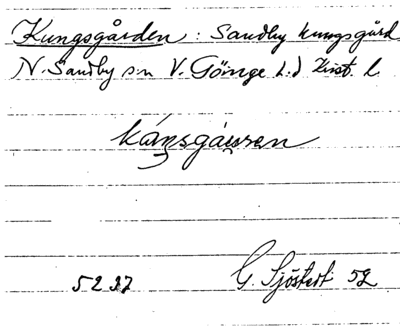 Kungsgården: Sandby kungsgård
N. Sandby sn V. Göinge h.d Krist. l.
káŋsgáuren
5237
G. Sjöstedt 52